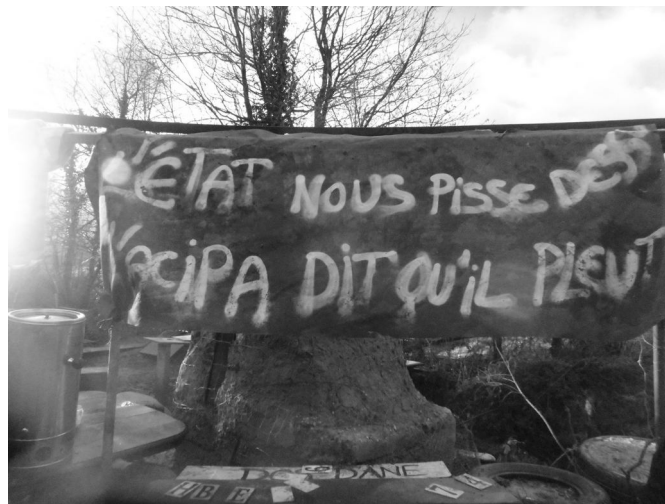 L'ÉTAT NOUS PISSE DESS
L'ACIPA DIT QU'IL PLEUT